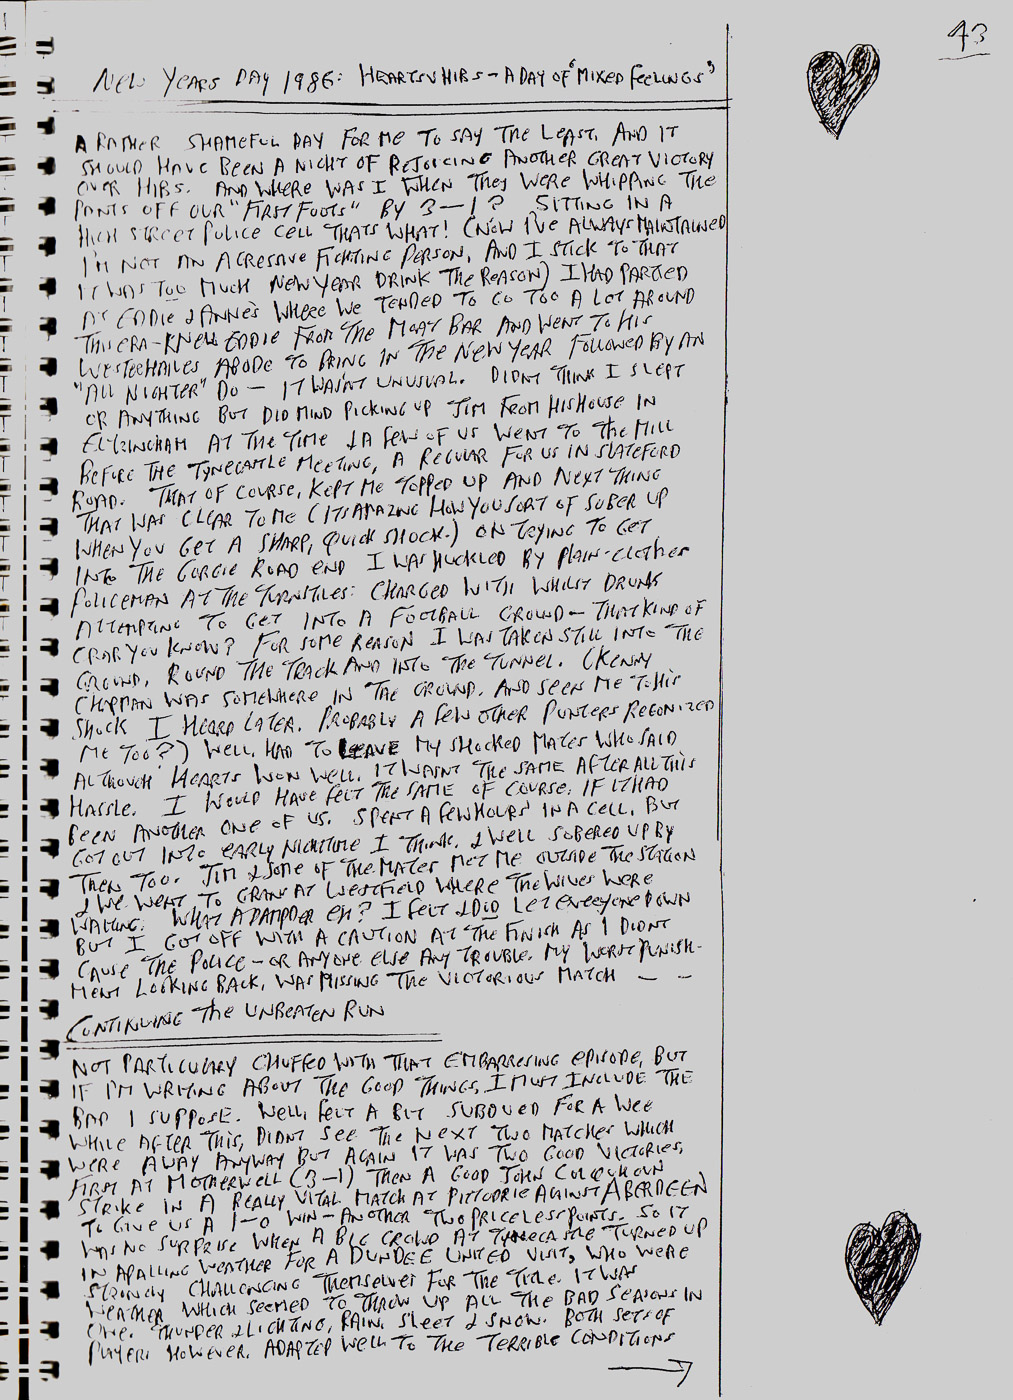 43
NEW YEARS DAY 1986: HEARTS V HIBS - A DAY OF "MIXED FEELINGS"
A RATHER SHAMEFUL DAY FOR ME TO SAY THE LEAST. AND IT
SHOULD HAVE BEEN A NIGHT OF REJOICING ANOTHER GREAT VICTORY
OVER HIBS. AND WHERE WAS I WHEN THEY WERE WHIPPING THE
PANTS OFF OUR "FIRST FOOTS" BY 3-1? SITTING IN A
HIGH STREET POLICE CELL THATS WHAT! (NOW I'VE ALWAYS MAINTAINED
I'M NOT AN AGRESSIVE FIGHTING PERSON, AND I STICK TO THAT
IT WAS TOO MUCH NEW YEAR DRINK THE REASON) I HAD PARTIED
AT EDDIE & ANNE'S WHERE WE TENDED TO GO TOO A LOT AROUND
THIS ERA - KNEW EDDIE FROM THE MOAT BAR AND WENT TO HIS
WESTERHAILES ABODE TO BRING IN THE NEW YEAR FOLLOWED BY AN
"ALL NIGHTER" DO - IT WASN'T UNUSUAL. DIDNT THINK I SLEPT
OR ANYTHING BUT DID MIND PICKING UP JIM FROM HIS HOUSE IN
ELTRINGHAM AT THE TIME & A FEW OF US WENT TO THE MILL
BEFORE THE TYNECASTLE MEETING, A REGULAR FOR US IN SLATEFORD
ROAD. THAT OF COURSE, KEPT ME TOPPED UP AND NEXT THING
THAT WAS CLEAR TO ME (ITS AMAZING HOW YOU SORT OF SOBER UP
WHEN YOU GET A SHARP, QUICK SHOCK.) ON TRYING TO GET
INTO THE GORGIE ROAD END I WAS HUCKLED BY PLAIN-CLOTHES
POLICEMAN AT THE TURNSTILES: CHARGED WITH WHILST DRUNK
ATTEMPTING TO GET INTO A FOOTBALL GROUND - THAT KIND OF
CRAP YOU KNOW? FOR SOME REASON I WAS TAKEN STILL INTO THE
GROUND, ROUND THE TRACK AND INTO THE TUNNEL. (KENNY
CHAPMAN WAS SOMEWHERE IN THE GROUND, AND SEEN ME TO HIS
SHOCK I HEARD LATER. PROBABLY A FEW OTHER PUNTERS REGONIZED
ME TOO?) WELL, HAD TO LEAVE MY SHOCKED MATES WHO SAID
ALTHOUGH HEARTS WON WELL, IT WASNT THE SAME AFTER ALL THIS
HASSLE. I WOULD HAVE FELT THE SAME OF COURSE, IF IT HAD
BEEN ANOTHER ONE OF US. SPENT A FEW HOURS IN A CELL, BUT
GOT OUT INTO EARLY NIGHTIME I THINK, & WELL SOBERED UP BY
THEN TOO. JIM & SOME OF THE MATES MET ME OUTSIDE THE STATION
& WE WENT TO GRANS AT WESTFIELD WHERE THE WIVES WERE
WAITING. WHAT A DAMPDER EH? I FELT & DID LET EVERYONE DOWN
BUT I GOT OFF WITH A CAUTION AT THE FINISH AS I DIDNT
CAUSE THE POLICE - OR ANYONE ELSE ANY TROUBLE. MY WORST PUNISH-
MENT LOOKING BACK, WAS MISSING THE VICTORIOUS MATCH - -
CONTINUING THE UNBEATEN RUN
NOT PARTICULARY CHUFFED WITH THAT EMBARRESING EPISODE, BUT
IF I'M WRITING ABOUT THE GOOD THINGS, I MUST INCLUDE THE
BAD I SUPPOSE. WELL, FELT A BIT SUBDUED FOR A WEE
WHILE AFTER THIS, DIDNT SEE THE NEXT TWO MATCHES WHICH
WERE AWAY ANYWAY BUT AGAIN IT WAS TWO GOOD VICTORIES,
FIRST AT MOTHERWELL (3-1) THEN A GOOD JOHN COLQUHOUN
STRIKE IN A REALLY VITAL MATCH AT PITTODRIE AGAINST ABERDEEN
TO GIVE US A 1-0 WIN - ANOTHER TWO PRICELESS POINTS. SO IT
WAS NO SURPRISE WHEN A BIG CROWD AT TYNECASTLE TURNED UP
IN APALLING WEATHER FOR A DUNDEE UNITED VISIT, WHO WERE
STRONGLY CHALLENGING THEMSELVES FOR THE TITLE. IT WAS
WEATHER WHICH SEEMED TO THROW UP ALL THE BAD SEASONS IN
ONE. THUNDER & LIGHTING, RAIN, SLEET & SNOW. BOTH SETS OF
PLAYERS HOWEVER, ADAPTED WELL TO THE TERRIBLE CONDITIONS